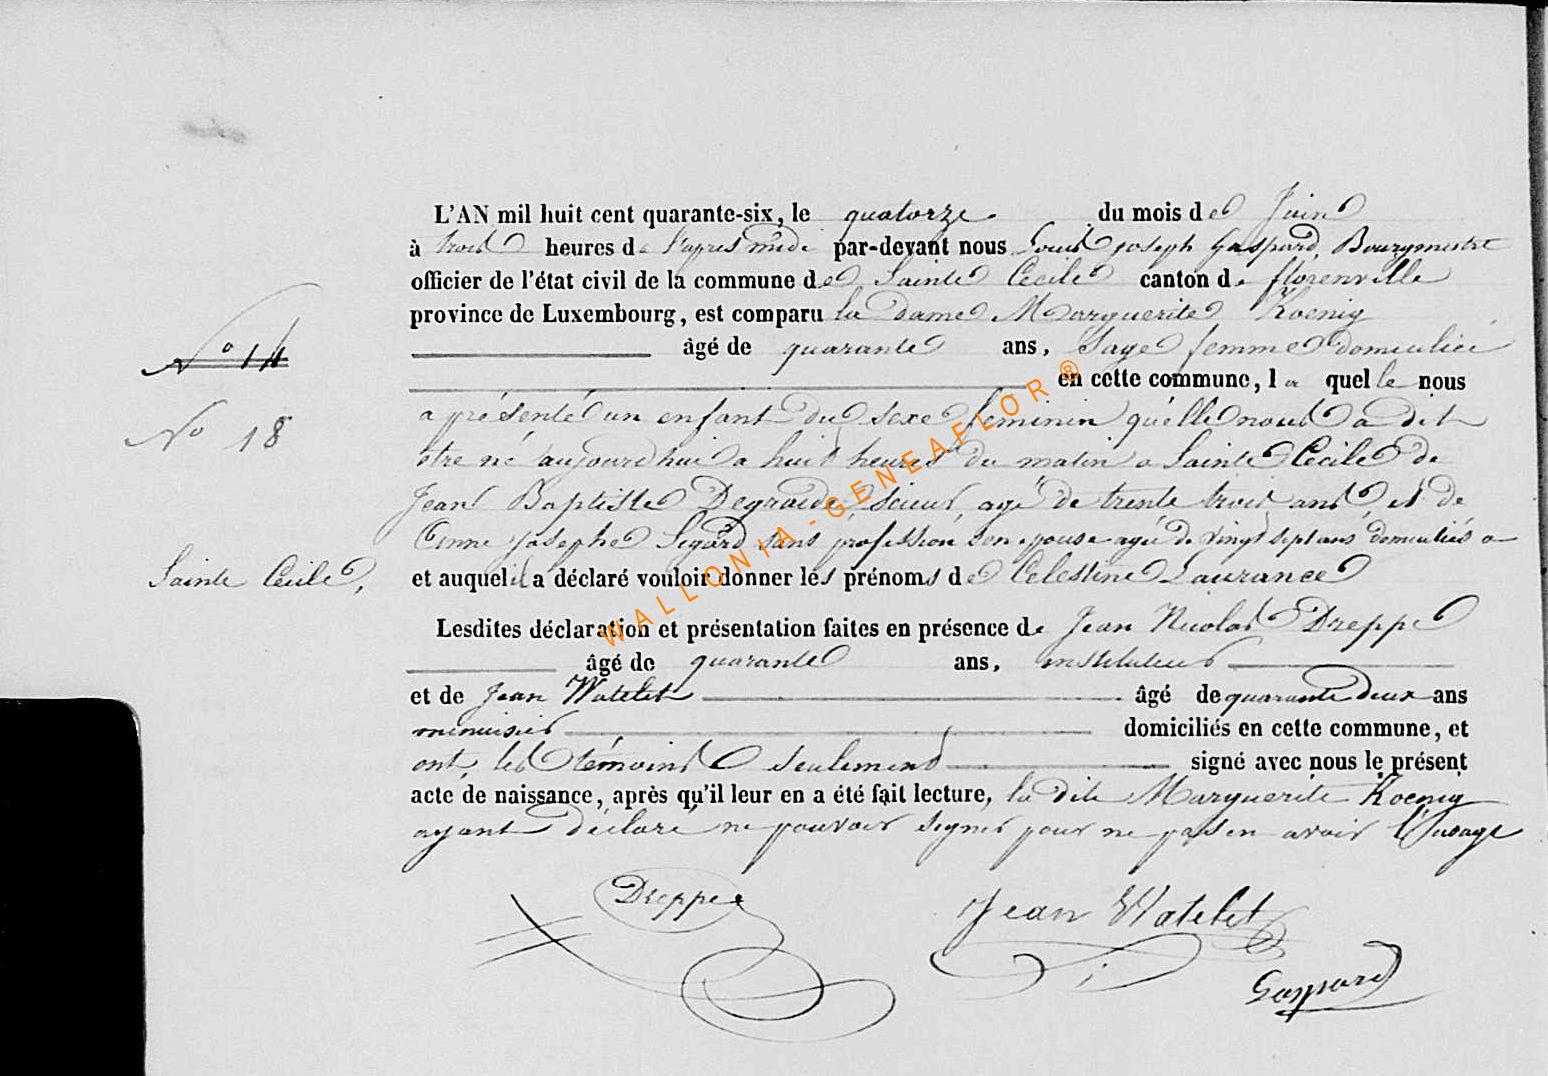 L'AN mil huit cent quarante-six, le quatorze du mois de Juin
à trois heures de l'après midi par-devant nous Louis joseph Gaspard, Bourgmestre
officier de l'état civil de la commune de Sainte Cecile canton de florenville
province de Luxembourg, est comparu la dame Marguerite Koenig
N° 14
âgé de quarante ans, Sage femme domiciliée
en cette commune, la quelle nous
No 18
a présenté un enfant du sexe feminin qu'elle nous a dit
être né aujourd'hui a huit heures du matin a Sainte Cecile de
Jean Baptiste Degraide, scieur, agé de trente trois ans, et de
Anne josephe Sigard sans profession son epouse agée de vingt sept ans domiciliés a
Sainte Cecile,
et auquel il a déclaré vouloir donner les prénoms de Celestine Laurance
Lesdites déclaration et présentation faites en présence de Jean Nicolas Dreppe
âgé de quarante ans, instituteur
et de Jean Watelet âgé de quarante deux ans
menuisier domiciliés en cette commune, et
ont, les témoins seulement signé avec nous le présent
acte de naissance, après qu'il leur en a été fait lecture, la dite Marguerite Koenig
ayant déclaré ne pouvoir signer pour ne pas en avoir l'usage
Dreppe
Jean Watelet
Gaspard
WALLONIA-GENEAFLOR®